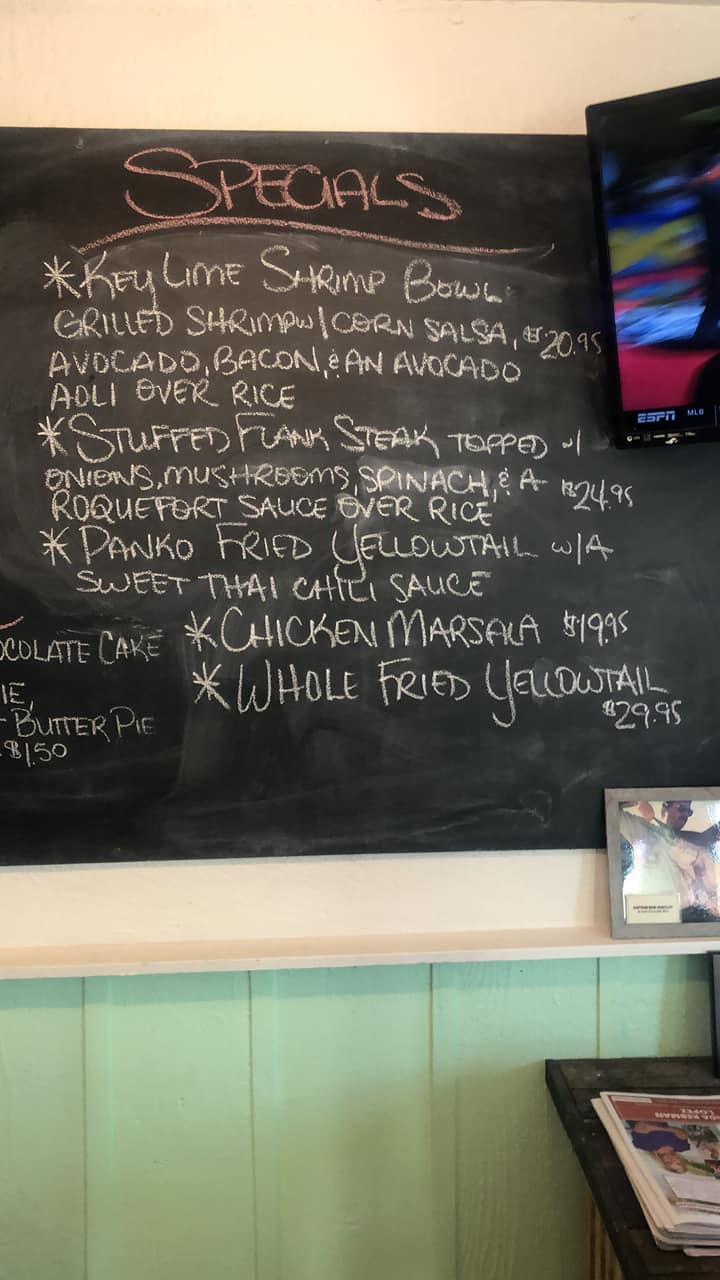 SPECIALS
*KEY LIME SHRIMP BOWL
GRILLED SHRIMP W/ CORN SALSA, $20.95
AVOCADO, BACON, & AN AVOCADO
AOLI OVER RICE
*STUFFED FLANK STEAK TOPPED w/
ONIONS, MUSHROOMS, SPINACH, & A $24.95
ROQUEFORT SAUCE OVER RICE
*PANKO FRIED YELLOWTAIL W/A
SWEET THAI CHILI SAUCE
*CHICKEN MARSALA $19.95
*WHOLE FRIED YELLOWTAIL
$29.95
OCOLATE CAKE
IE,
BUTTER PIE
$1.50
ESPN MLB
LOPEZ